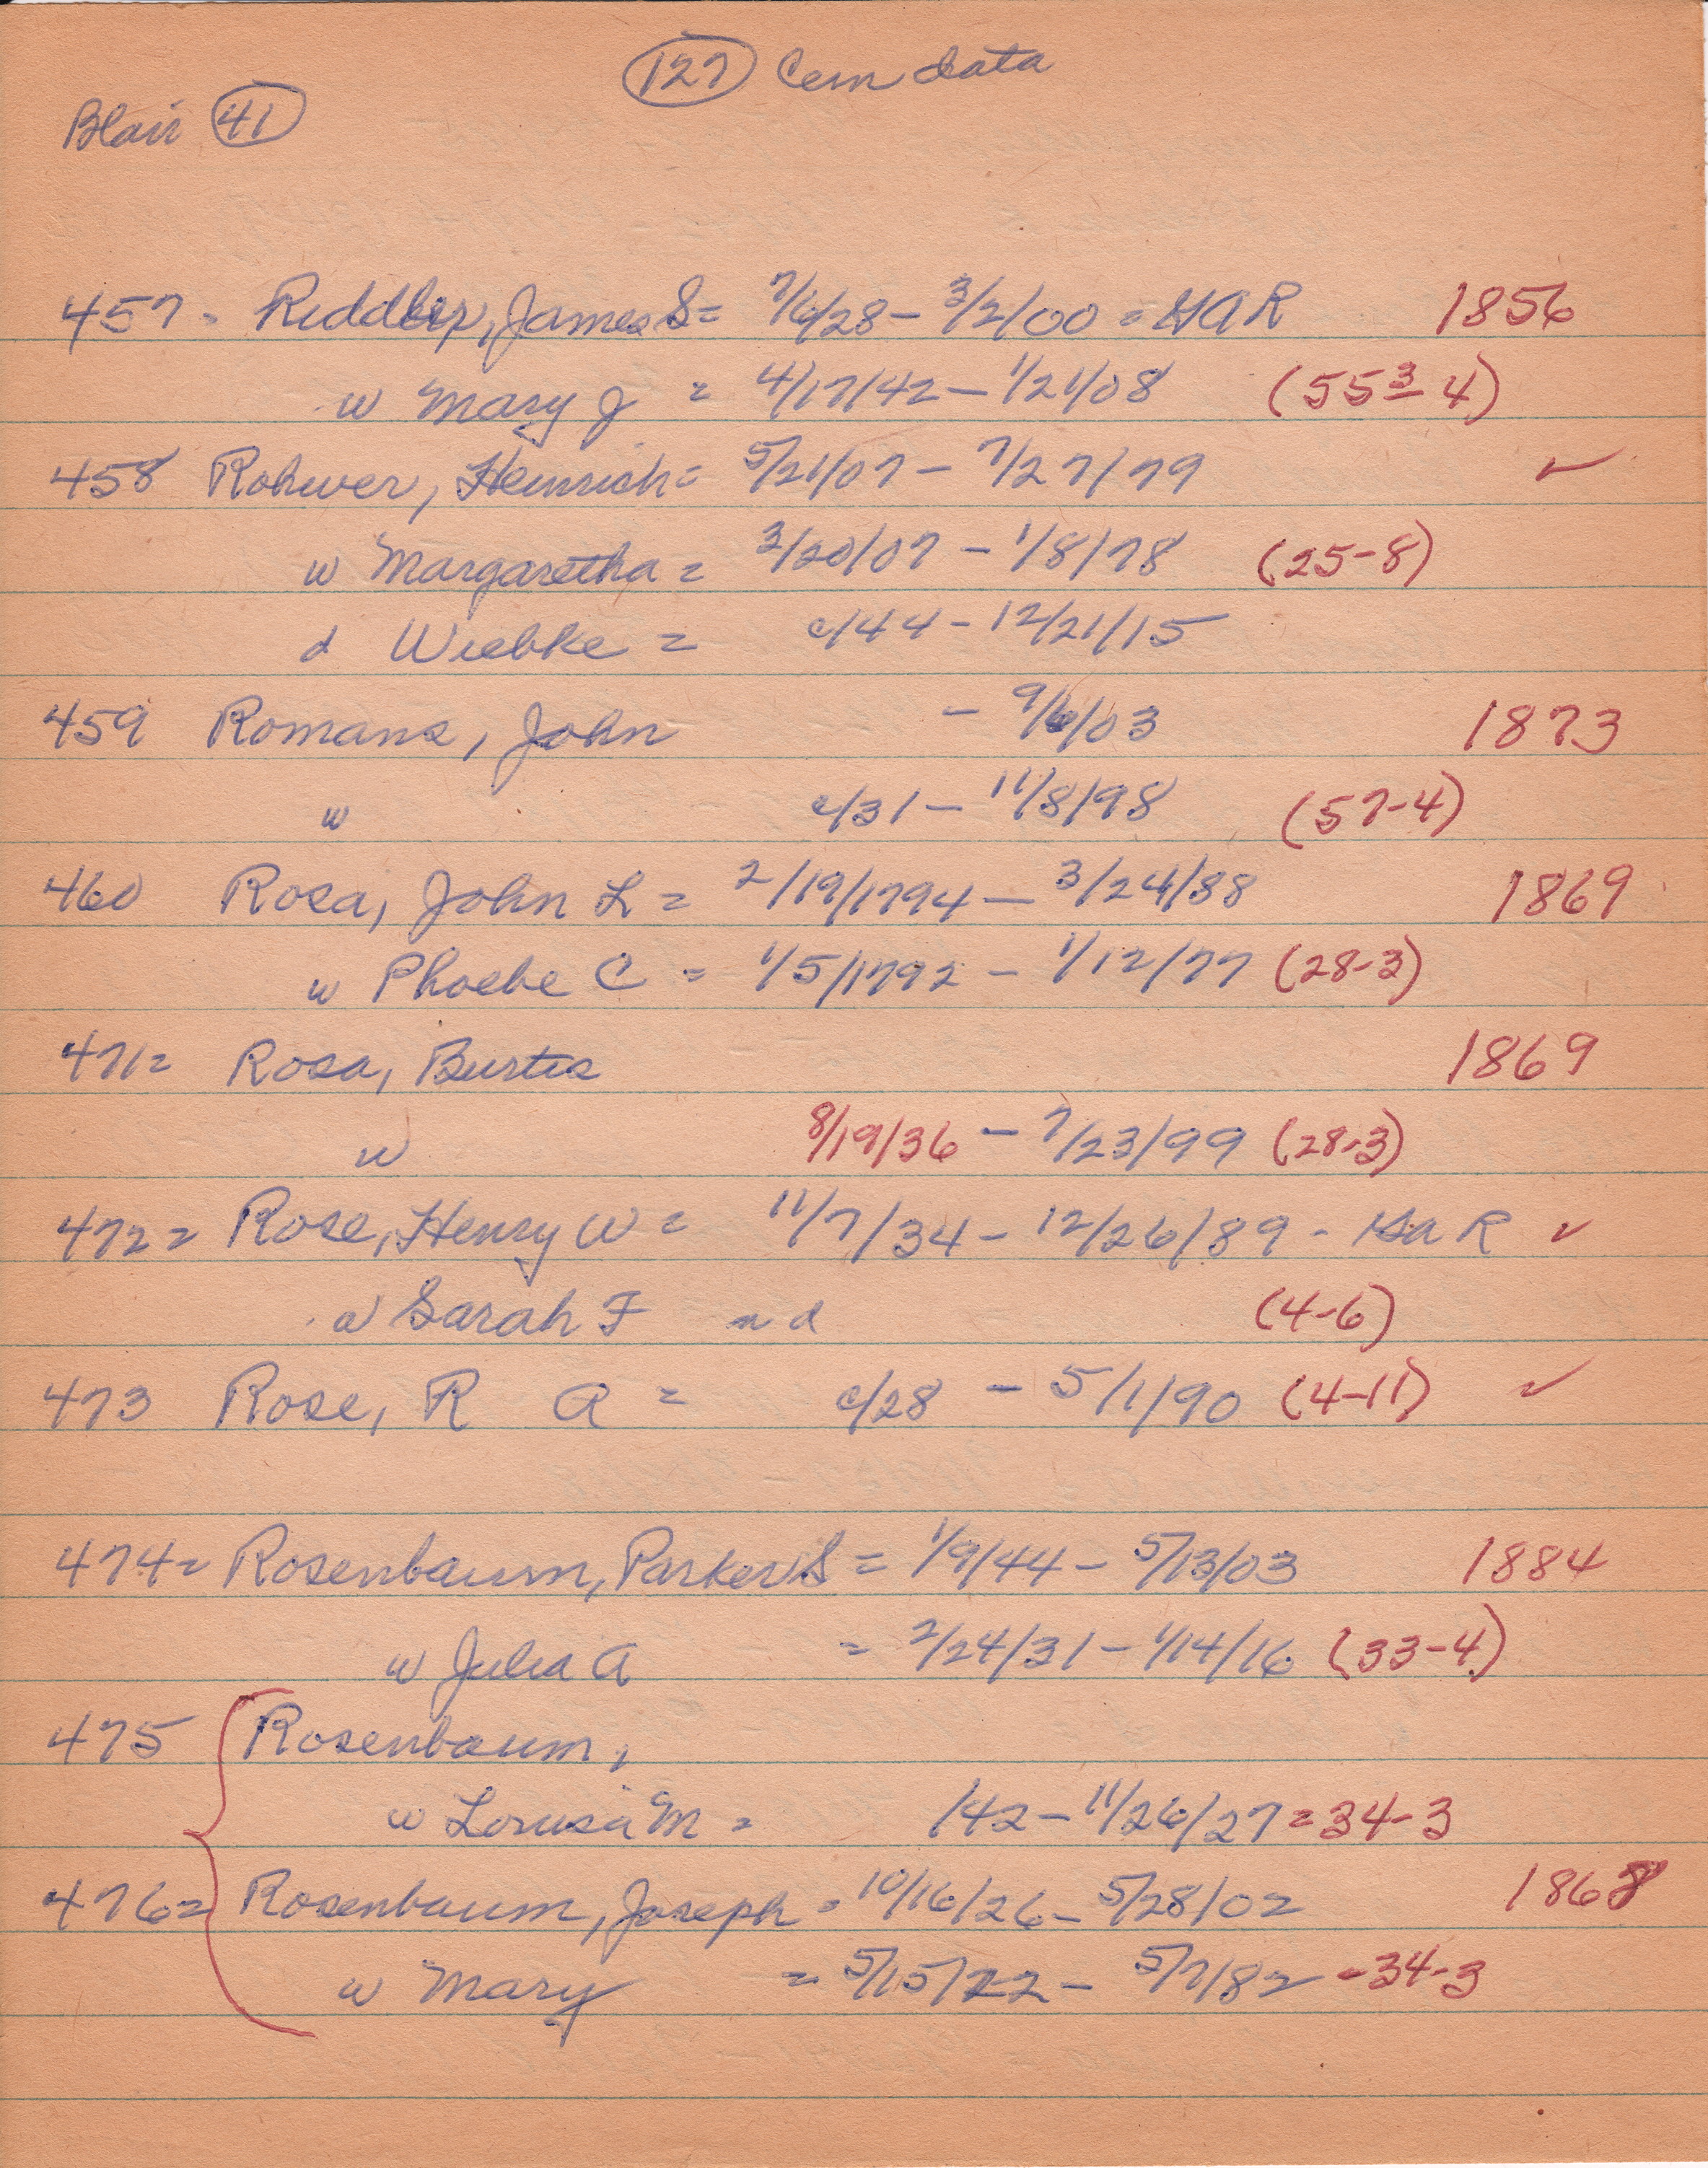 (127) Cem data
Blair (41)
457 - Riddler, James S = 7/6/28 - 3/2/00 = GAR 1856
w Mary J = 4/17/42 - 1/21/08 (55 3 - 4)
458 Rohwer, Heinrich = 5/21/07 - 7/27/79 ✓
w Margaretha = 3/20/07 - 1/8/78 (25-8)
d Wiebke = c/44 - 12/21/15
459 Romans, John - 9/6/03 1873
w c/31 - 11/8/98 (57-4)
460 Rosa, John L = 2/19/1794 - 3/24/88 1869
w Phoebe C = 1/5/1792 - 1/12/77 (28-3)
471 = Rosa, Burtis 1869
w 8/19/36 - 7/23/99 (28-3)
472 = Rose, Henry W = 11/7/34 - 12/26/89 - GaR ✓
w Sarah F n d (4-6)
473 Rose, R A = c/28 - 5/1/90 (4-11) ✓
474 = Rosenbaum, Parker S = 1/9/44 - 5/13/03 1884
w Julia A = 2/24/31 - 1/14/16 (33-4)
475 Rosenbaum,
w Lousia M = /42 - 11/26/27 = 34-3
476 = Rosenbaum, Joseph = 10/16/26 - 5/28/02 1868
w Mary = 5/15/22 - 5/7/82 - 34-3